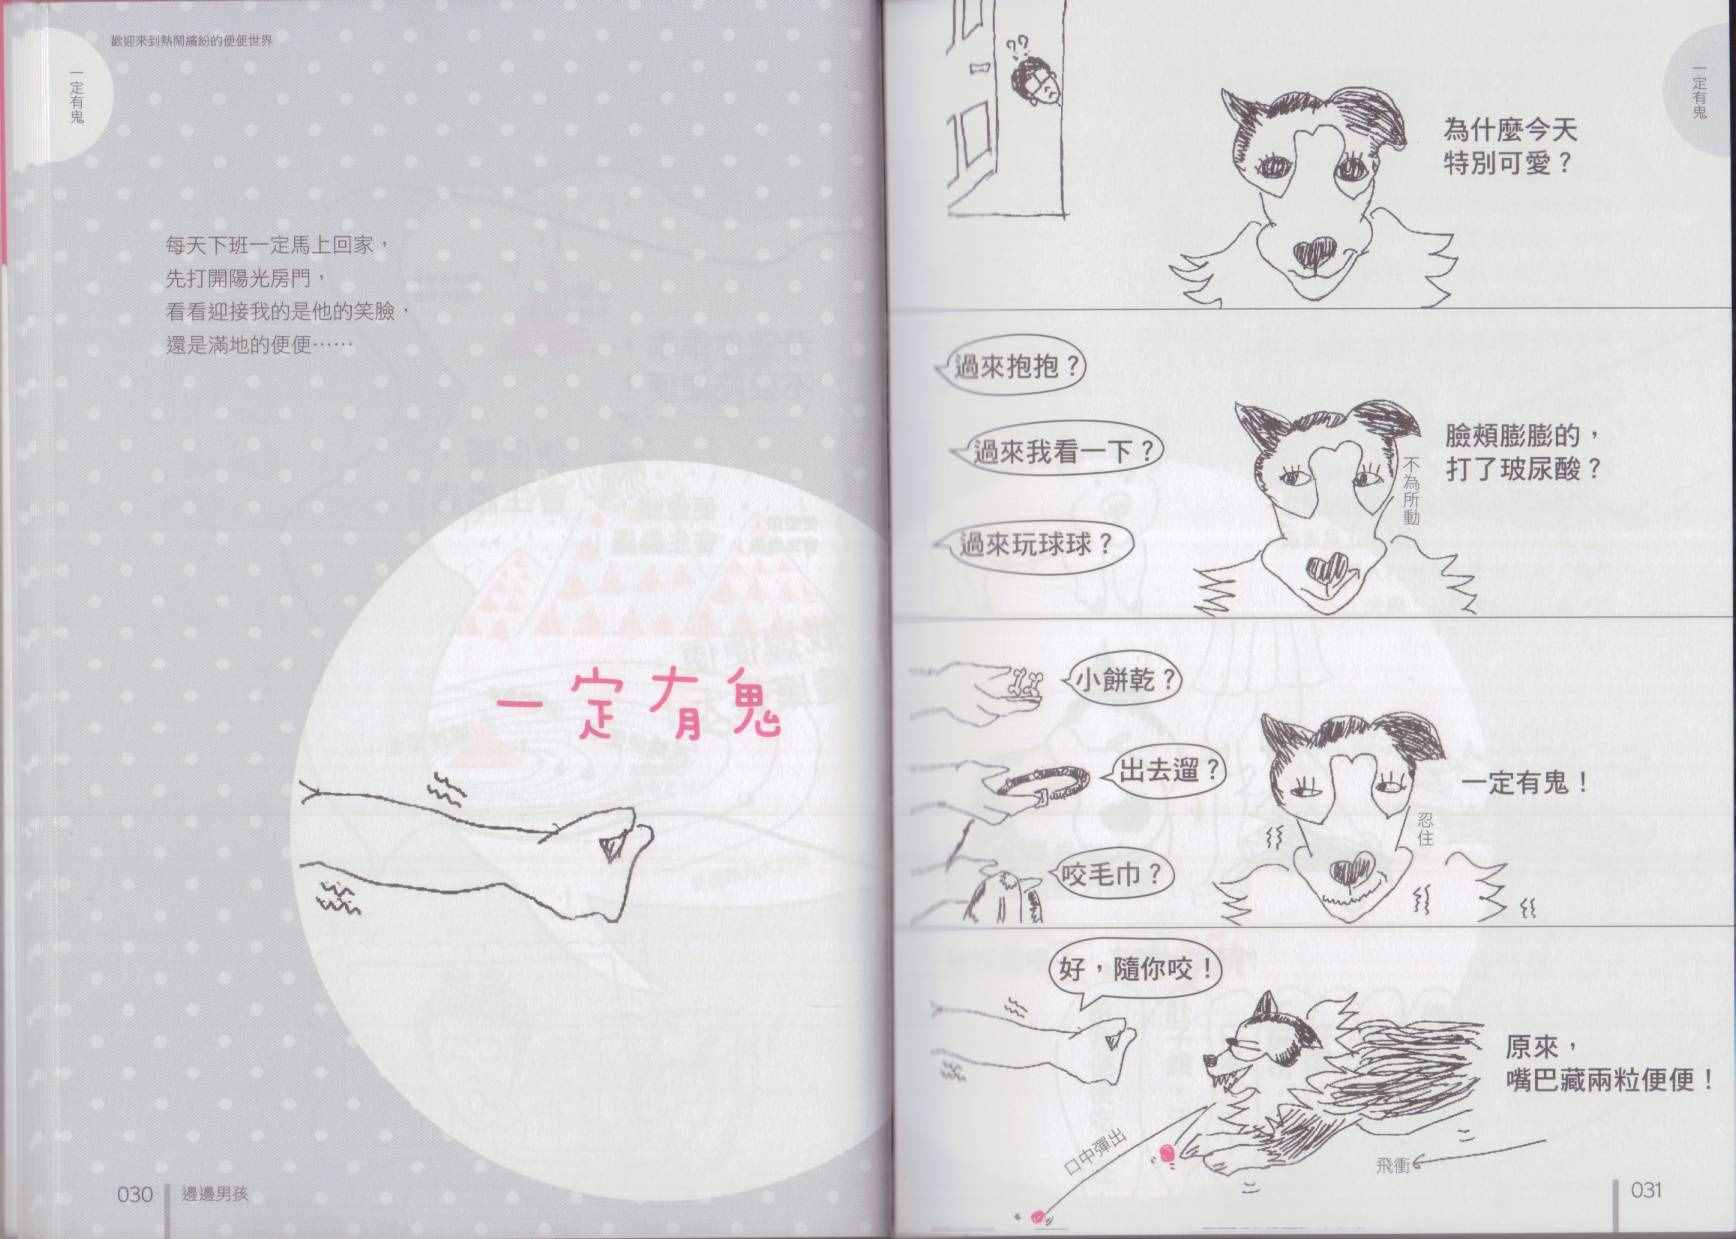 歡迎來到熱鬧繽紛的便便世界
一定有鬼
每天下班一定馬上回家，
先打開陽光房門，
看看迎接我的是他的笑臉，
還是滿地的便便……
一定有鬼
030
邊邊男孩
一定有鬼
??
為什麼今天
特別可愛？
過來抱抱？
過來我看一下？
過來玩球球？
不為所動
臉頰膨膨的，
打了玻尿酸？
小餅乾？
出去遛？
咬毛巾？
忍住
一定有鬼！
好，隨你咬！
原來，
嘴巴藏兩粒便便！
口中彈出
飛衝
031